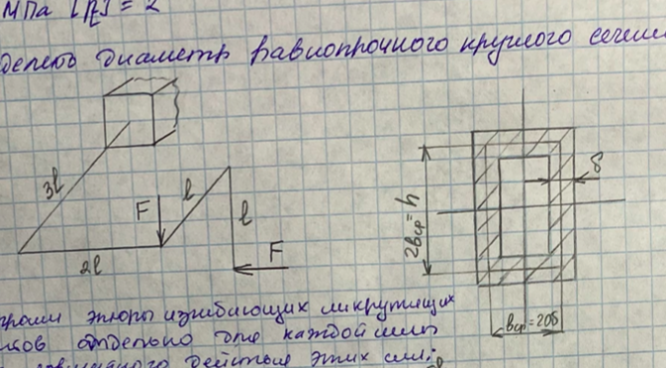 МПа [n] = 2
делеть диаметр равнопрочного круглого сечен
3l
F
l
l
F
2l
2bср=h
δ
bср=20δ
эпюры изгибающих и крутящих
отдельно для каждой силы
действия этих сил: